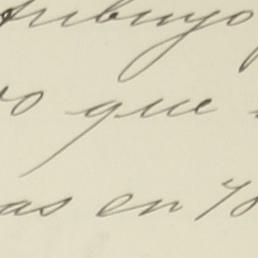 tribuyo
o que
as en